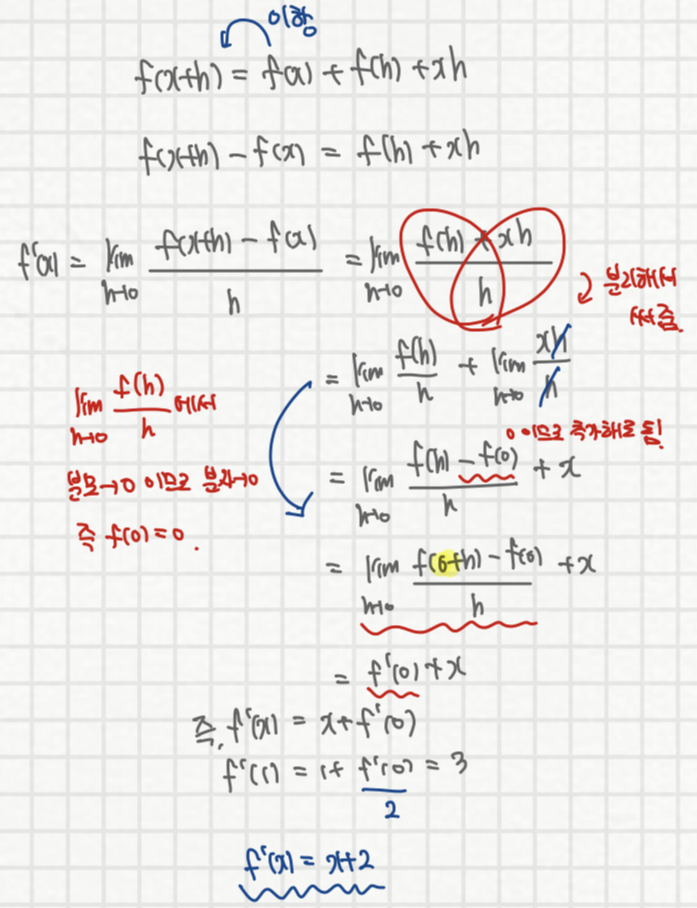 이항
f(x+h) = f(x) + f(h) + xh
f(x+h) - f(x) = f(h) + xh
f'(x) = lim h→0 (f(x+h) - f(x))/h = lim h→0 (f(h) + xh)/h
분리해서
써줌.
= lim h→0 f(h)/h + lim h→0 xh/h
lim h→0 f(h)/h 에서
분모→0 이므로 분자→0
즉 f(0)=0.
0 이므로 추가해도 됨!
= lim h→0 (f(h) - f(0))/h + x
= lim h→0 (f(0+h) - f(0))/h + x
= f'(0) + x
즉, f'(x) = x + f'(0)
f'(1) = 1 + f'(0) = 3
2
f'(x) = x+2